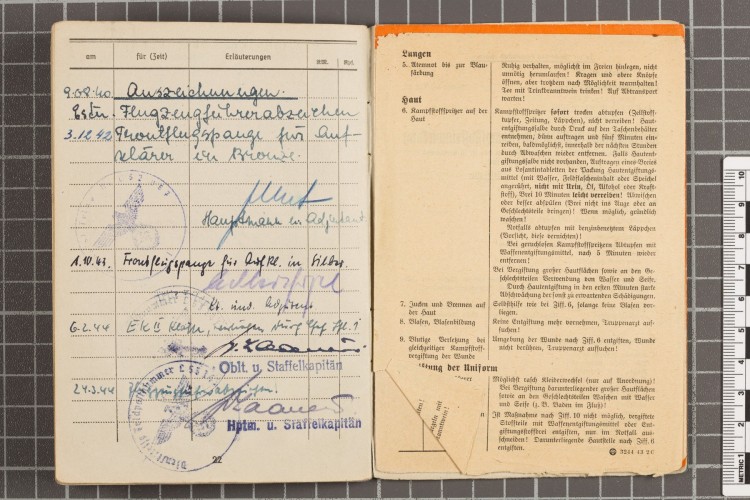 am für (Zeit) Erläuterungen
9.08.40. Auszeichnungen.
Flugzeugführerabzeichen
3.12.42 Frontflugspange für Auf-
klärer in Bronze.
Hauptmann u. Adjutant.
1.10.43. Frontflugspange für Aufkl. in Silber.
Lt. und Adjutant
6.2.44 EK II Klasse, verliehen durch
Oblt. u. Staffelkapitän
24.3.44
Hptm. u. Staffelkapitän
22
Lungen
5. Atemnot bis zur Blau-
färbung
Ruhig verhalten, möglichst im Freien hinlegen, nicht
unnötig herumlaufen! Kragen und obere Knöpfe
öffnen, aber trotzdem nach Möglichkeit warmhalten!
Tee mit Trinkbranntwein trinken! Auf Abtransport
warten!
Haut
6. Kampfstoffspritzer auf der
Haut
Kampfstoffspritzer sofort trocken abtupfen (Zellstoff-
tupfer, Zeitung, Läppchen), nicht verreiben! Haut-
entgiftungssalbe durch Druck auf den Taschenbehälter
entnehmen; dann auftragen und fünf Minuten ein-
reiben, baldmöglichst, innerhalb der nächsten Stunden
durch Abwaschen wieder entfernen. Falls Hautent-
giftungssalbe nicht vorhanden, Auftragen eines Breies
aus Losantintabletten der Packung Hautentgiftungs-
mittel (mit Wasser, Feldflascheninhalt oder Speichel
angerührt, nicht mit Urin, Öl, Alkohol oder Kraft-
stoff), Brei 10 Minuten leicht verreiben! Abwischen
oder besser abspülen (Brei nicht ins Auge oder an
Geschlechtsteile bringen)! Wenn möglich, gründlich
waschen!
Notfalls abtupfen mit benzinbenetztem Läppchen
(Vorsicht, diese vernichten)!
Bei geruchlosen Kampfstoffspritzern Abtupfen mit
Wasserentgiftungsmittel, nach 5 Minuten wieder
entfernen!
Bei Vergiftung großer Hautflächen sowie an den Ge-
schlechtsteilen Verwendung von Wasser und Seife.
Durch Hautentgiftung in den ersten Minuten starke
Abschwächung der sonst zu erwartenden Schädigungen.
7. Jucken und Brennen auf
der Haut
Selbsthilfe wie bei Ziff. 6, solange keine Blasen vor-
handen.
8. Blasen, Blasenbildung
Keine Entgiftung mehr vornehmen, Truppenarzt auf-
suchen!
9. Blutige Verletzung bei
gleichzeitiger Kampfstoff-
vergiftung der Wunde
Umgebung der Wunde nach Ziff. 6 entgiften, Wunde
nicht berühren, Truppenarzt aufsuchen!
der Uniform
Möglichst rasch Kleiderwechsel (nur auf Anordnung)!
Bei Vergiftung darunterliegender großer Hautflächen
sowie an den Geschlechtsteilen Waschen mit Wasser
und Seife (z. B. Baden im Fluß)!
Ist Maßnahme nach Ziff. 10 nicht möglich, vergiftete
Stoffteile mit Wasserentgiftungsmittel oder Ent-
giftungsstoff entgiften, nur im Notfall aus-
schneiden! Darunterliegende Hautstelle nach Ziff. 6
entgiften.
3244 43 2 C
10 9 8 7 6 5 4 3 2 1
METRIC 1